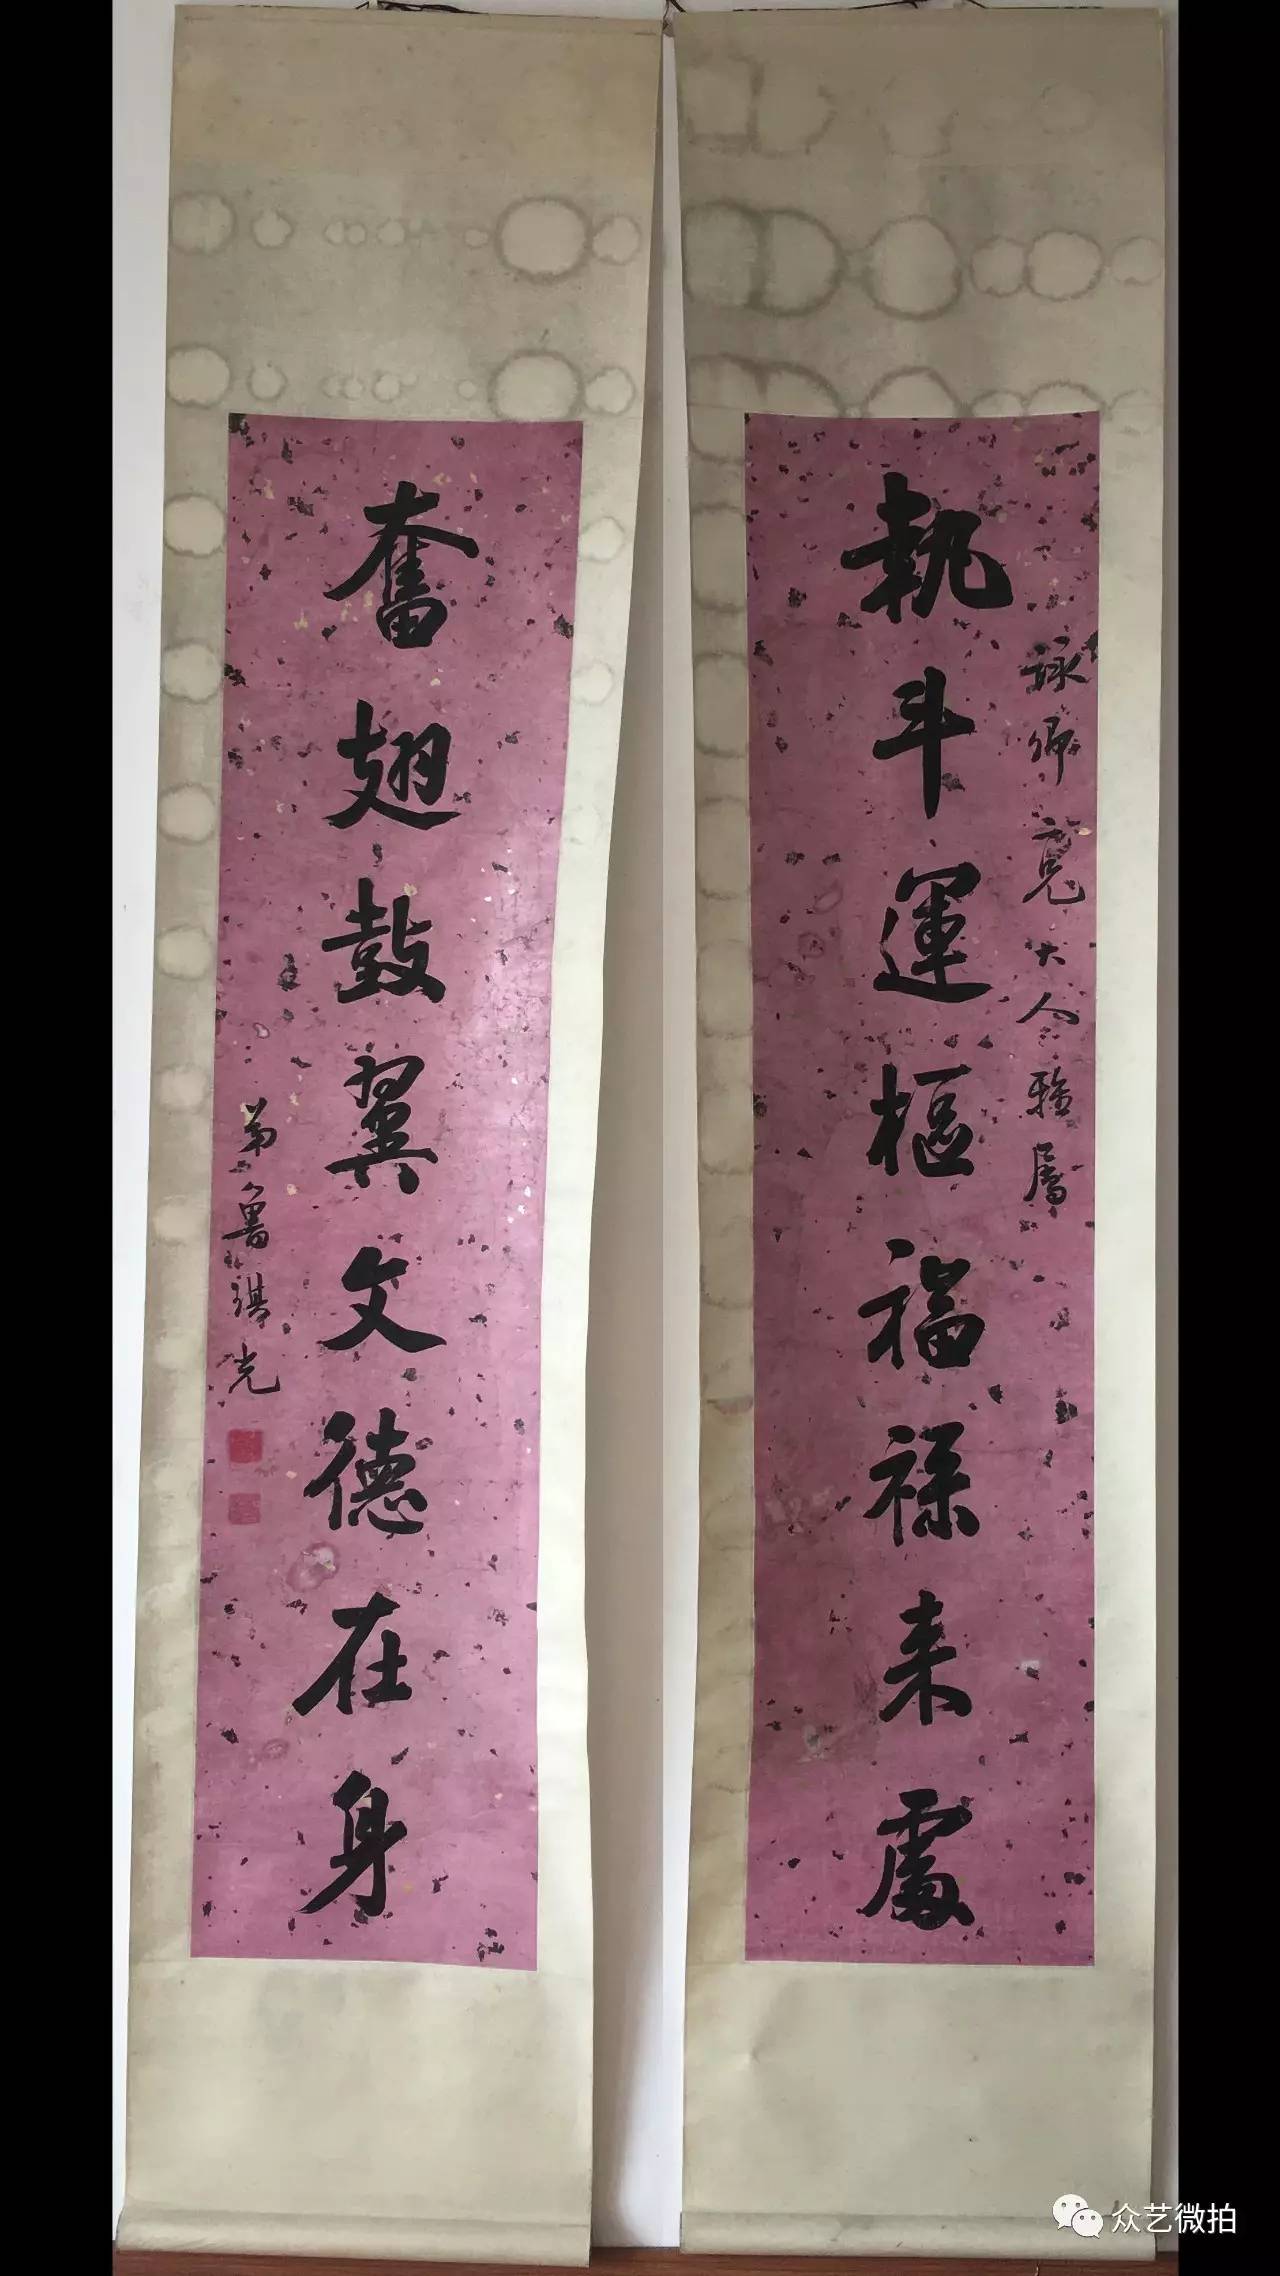 詠卿寛大人雅屬
執斗運樞福祿来處
奮翅鼓翼文德在身
弟魯琪光
众艺微拍